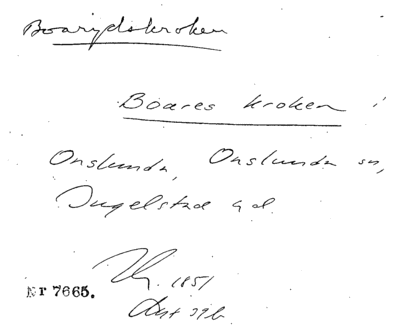 Boarydskroken
Boares kroken i
Onslunda, Onslunda sn,
Ingelstad hd.
1851
Nr 7665.